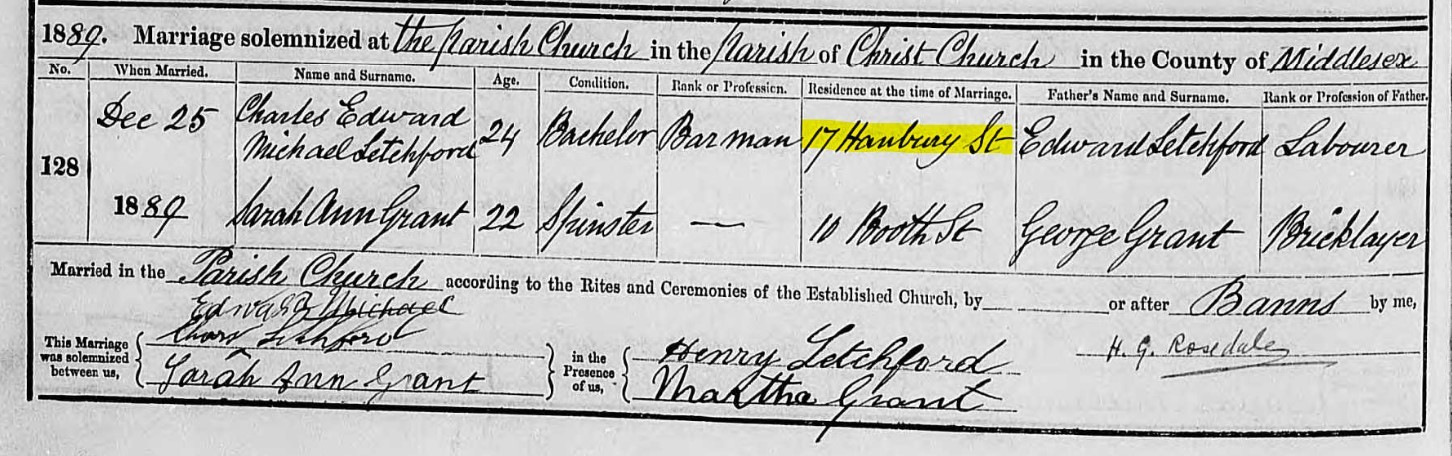 1889. Marriage solemnized at the Parish Church in the Parish of Christ Church in the County of Middlesex
No. When Married. Name and Surname. Age. Condition. Rank or Profession. Residence at the time of Marriage. Father's Name and Surname. Rank or Profession of Father.
128 Dec 25 Charles Edward Michael Letchford 24 Bachelor Barman 17 Hanbury St Edward Letchford Labourer
1889 Sarah Ann Grant 22 Spinster — 10 Booth St George Grant Bricklayer
Married in the Parish Church according to the Rites and Ceremonies of the Established Church, by or after Banns by me,
Edward Michael
Letchford
H. G. Rosedale
This Marriage was solemnized between us, Sarah Ann Grant
in the Presence of us, Henry Letchford
Martha Grant